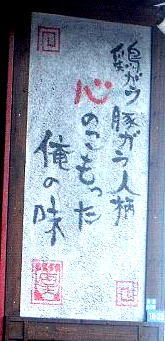 鶏ガラ豚ガラ人柄
心のこもった
俺の味